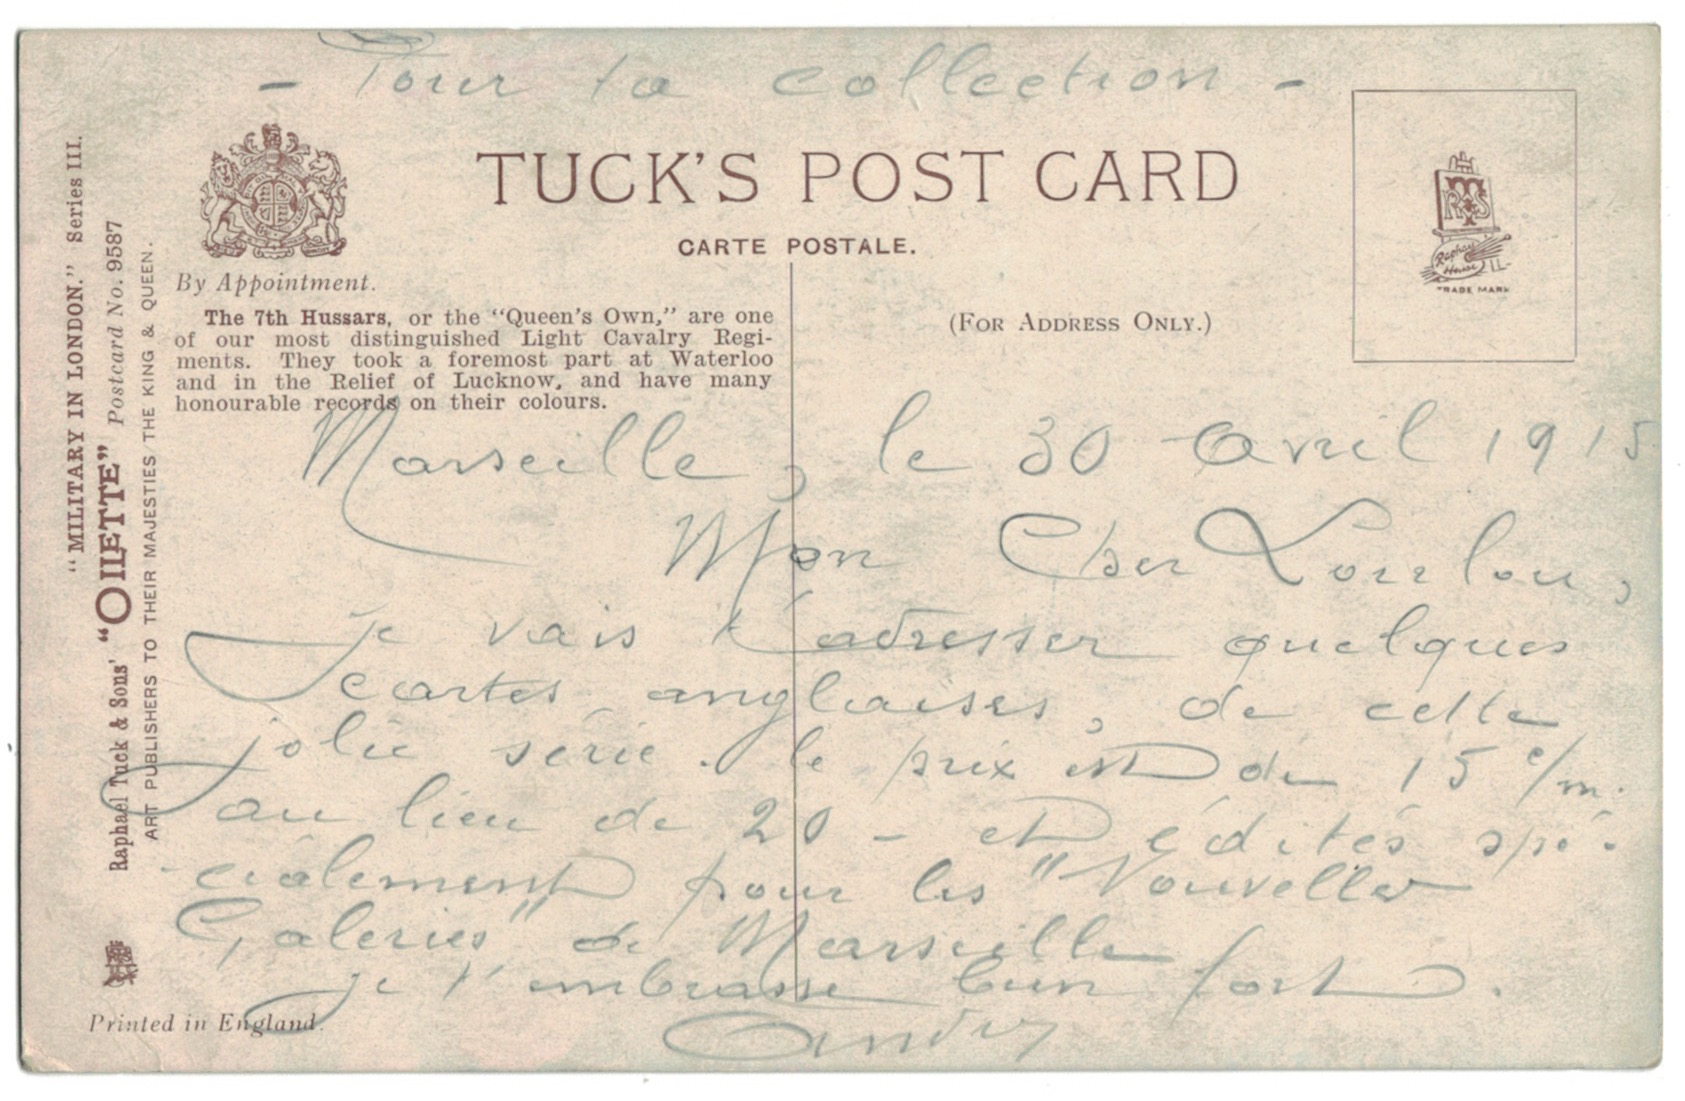 - Pour ta collection -
TUCK'S POST CARD
CARTE POSTALE.
By Appointment.
(FOR ADDRESS ONLY.)
TRADE MARK
Raphael House
"MILITARY IN LONDON." Series III.
Raphael Tuck & Sons' "OILETTE" Postcard No. 9587
ART PUBLISHERS TO THEIR MAJESTIES THE KING & QUEEN.
The 7th Hussars, or the "Queen's Own," are one
of our most distinguished Light Cavalry Regi-
ments. They took a foremost part at Waterloo
and in the Relief of Lucknow, and have many
honourable records on their colours.
Marseille, le 30 Avril 1915
Mon Cher Loulou,
Je vais t'adresser quelques
cartes anglaises, de cette
jolie série. le prix est de 15 c/m.
au lieu de 20 - et édités spé-
cialement pour les "Nouvelles
Galeries" de Marseille
Je t'embrasse bien fort.
André
Printed in England.